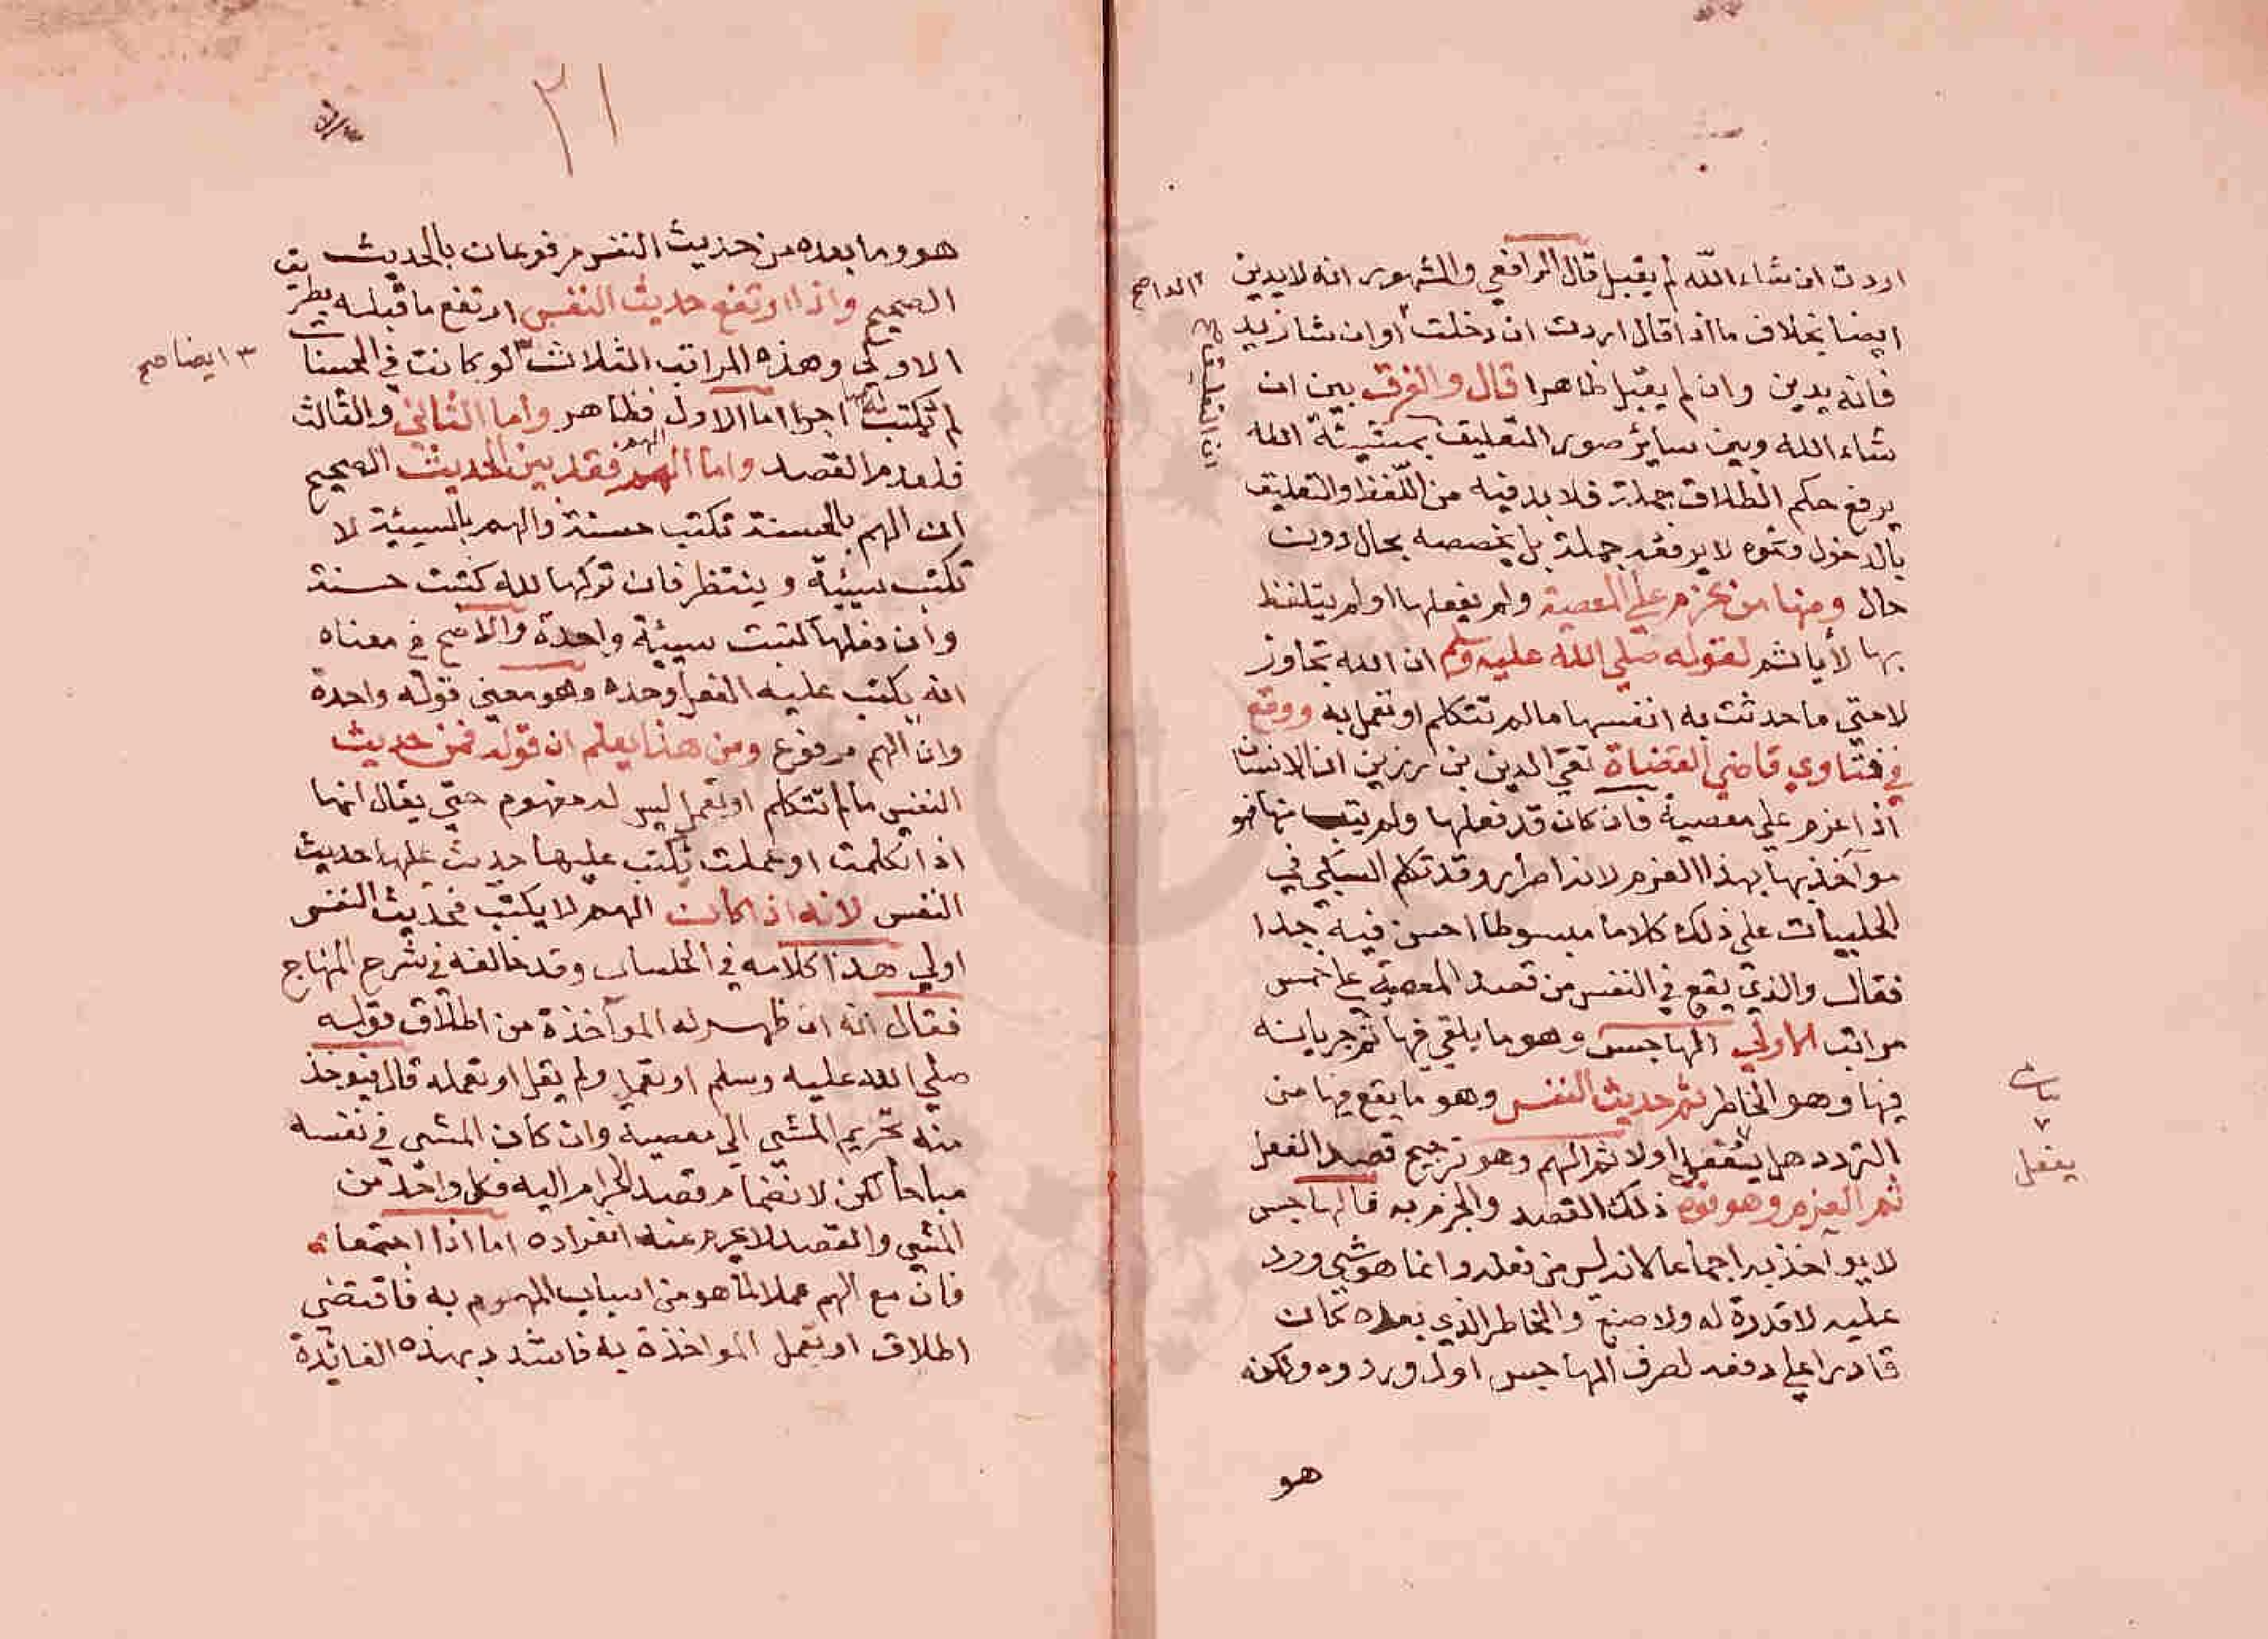 اردت ان شاء الله لم يقبل قال الرافعي والمشهور انه لا يدين
ايضا بخلاف ما اذا قال اردت ان دخلت او ان شا زيد
فانه يدين وان لم يقبل ظاهرا قال والفرق بين ان
شاء الله وبين سائر صور التعليق بمشيئة الله
يرفع حكم الطلاق جملة فلا بد فيه من اللفظ والتعليق
بالدخول ونحوه لا يرفعه جملة بل يخصصه بحال دون
حال ومنها من عزم علي المعصية ولم يفعلها او لم يتلفظ
بها لا ياثم لقوله صلي الله عليه وسلم ان الله تجاوز
لامتي ما حدثت به انفسها ما لم تتكلم او تعمل به ووقع
في فتاوي قاضي القضاة تقي الدين بن رزين ان الانسان
اذا عزم علي معصية فان كان قد فعلها ولم يتب منها فهو
مواخذ بها بهذا العزم لانه اصرار وقد تكلم السبكي في
الحلبيات على ذلك كلاما مبسوطا احسن فيه جدا
فقال والذي يقع في النفس من قصد المعصية علي خمس
مراتب الاولي الهاجس وهو ما يلقي فيها ثم جريانه
فيها وهو الخاطر ثم حديث النفس وهو ما يقع فيها من
التردد هل يفعل او لا ثم الهم وهو ترجيح قصد الفعل
ثم العزم وهو قوة ذلك القصد والجزم به فالهاجس
لا يواخذ به اجماعا لانه ليس من فعله وانما هو شي ورد
عليه لا قدرة له ولا صنع والخاطر الذي بعده كان
قادرا علي دفعه لصرف الهاجس اول وروده ولكنه
هو
يفعل
٢١
هو وما بعده من حديث النفس مرفوعان بالحديث
الصحيح واذا ارتفع حديث النفس ارتفع ما قبله بطريق
الاولي وهذه المراتب الثلاث لو كانت في الحسنات
لم تكتب له بها اجرا اما الاول فظاهر واما الثاني والثالث
فلعدم القصد واما الهم فقد بين الحديث الصحيح
ان الهم بالحسنة تكتب حسنة والهم بالسيئة لا
تكتب سيئة وينتظر فان تركها لله كتبت حسنة
وان فعلها كتبت سيئة واحدة والاصح في معناه
انه يكتب عليه الفعل وحده وهو معني قوله واحدة
وان الهم مرفوع ومن هذا يعلم ان قوله في حديث
النفس ما لم تتكلم او تعمل ليس له مفهوم حتي يقال انها
اذا تكلمت او عملت تكتب عليها حديث
النفس لانه اذا كان الهم لا يكتب فحديث النفس
اولي هذا كلامه في الحلبيات وقد خالفه في شرح المنهاج
فقال انه ان ظهر له المواخذة من اطلاق قوله
صلي الله عليه وسلم او تعمل ولم يقل او تعمله قال فيوخذ
منه تحريم المشي الي معصية وان كان المشي في نفسه
مباحا لكن لانضمام قصد الحرام اليه فكل واحد من
المشي والقصد لا يحرم عند انفراده اما اذا اجتمعا
فان مع الهم عملا لما هو من اسباب المهموم به فاقتضي
اطلاق او تعمل المواخذة به فاشدد بهذه الفائدة
٣ ايضا صح